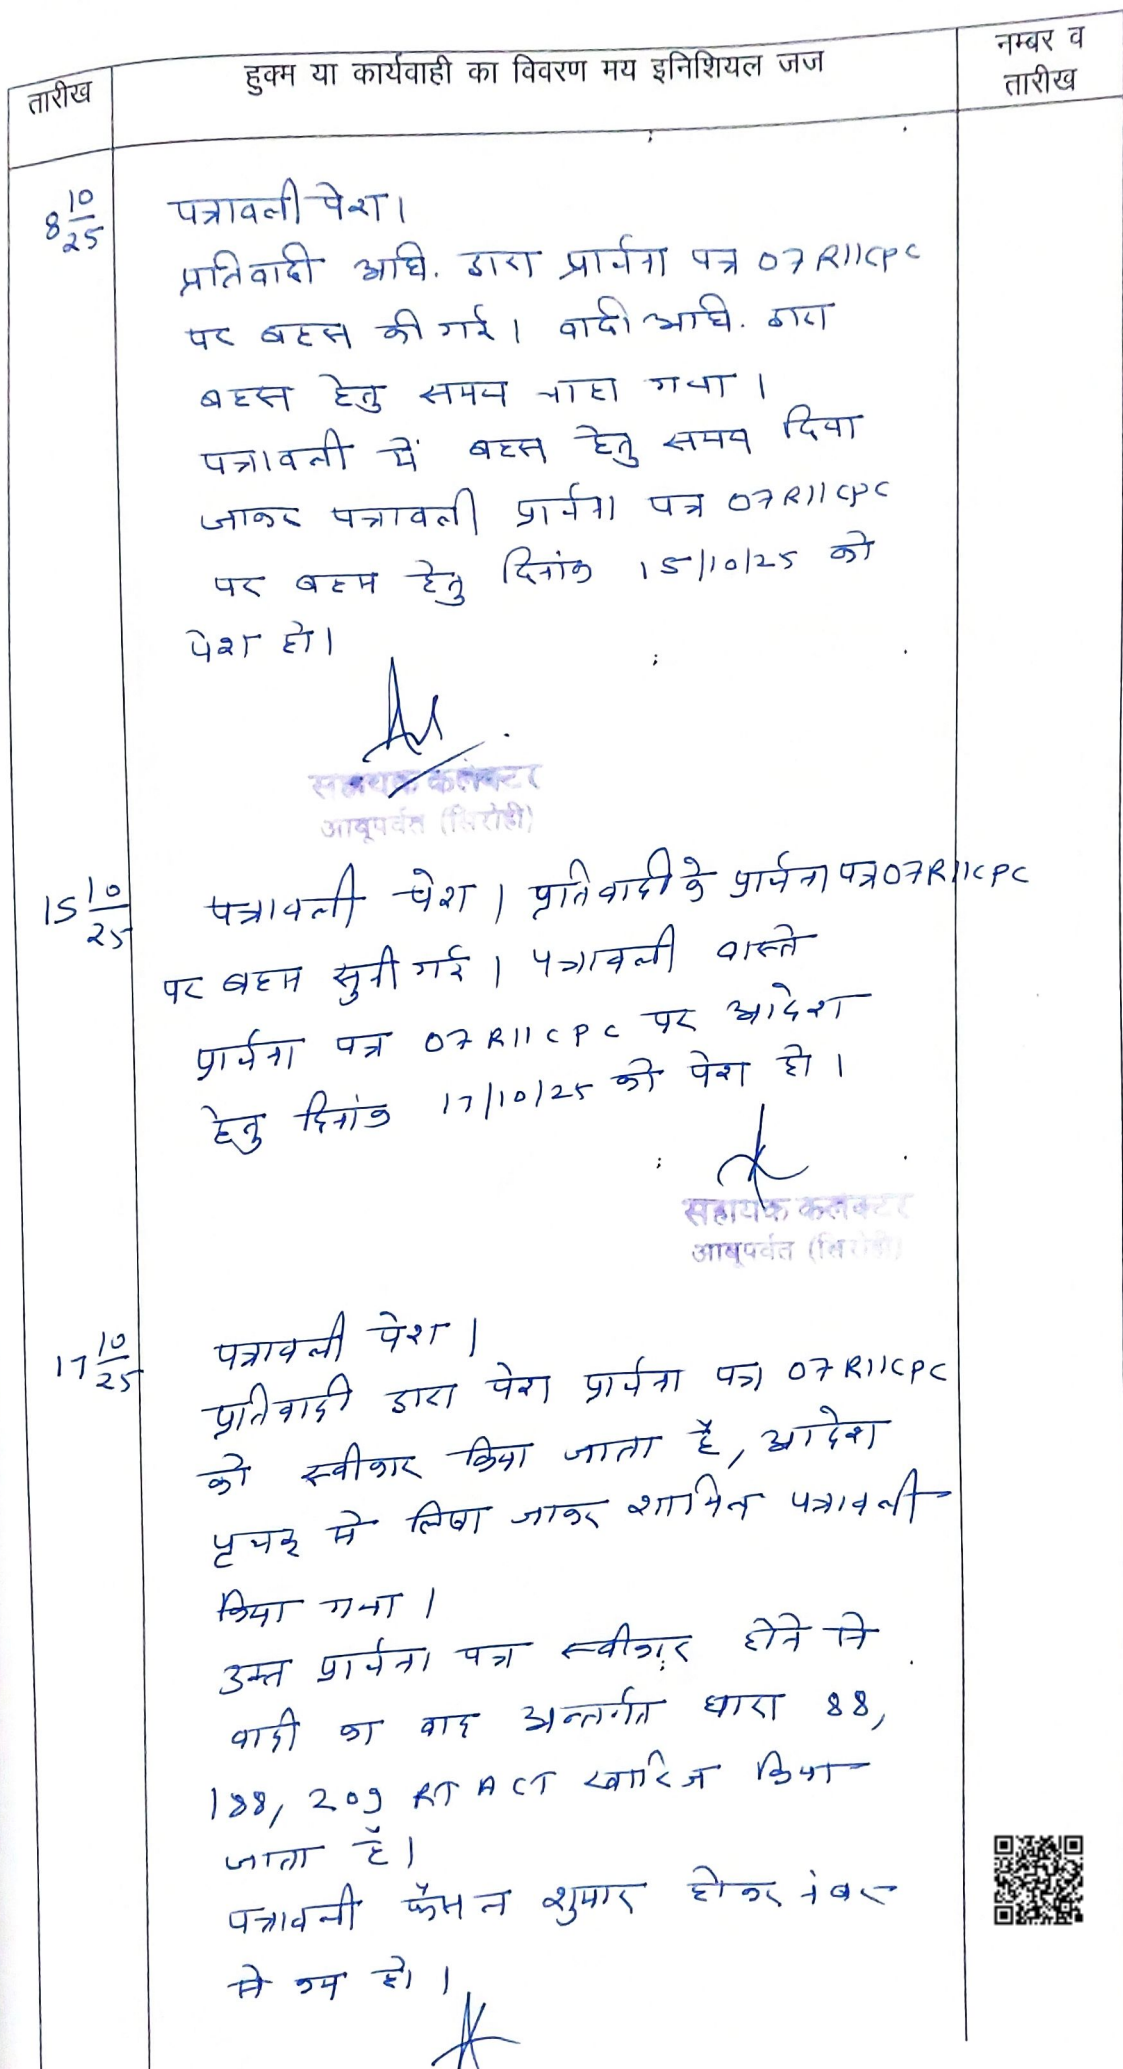 तारीख
हुक्म या कार्यवाही का विवरण मय इनिशियल जज
नम्बर व
तारीख
8 10/25
पत्रावली पेश।
प्रतिवादी अधि. द्वारा प्रार्थना पत्र 07 R11 CPC
पर बहस की गई। वादी अधि. द्वारा
बहस हेतु समय चाहा गया।
पत्रावली में बहस हेतु समय दिया
जाकर पत्रावली प्रार्थना पत्र 07 R11 CPC
पर बहस हेतु दिनांक 15/10/25 को
पेश हो।
सहायक कलक्टर
आबूपर्वत (सिरोही)
15 10/25
पत्रावली पेश। प्रतिवादी के प्रार्थना पत्र 07 R11 CPC
पर बहस सुनी गई। पत्रावली वास्ते
प्रार्थना पत्र 07 R11 CPC पर आदेश
हेतु दिनांक 17/10/25 को पेश हो।
सहायक कलक्टर
आबूपर्वत (सिरोही)
17 10/25
पत्रावली पेश।
प्रतिवादी द्वारा पेश प्रार्थना पत्र 07 R11 CPC
को स्वीकार किया जाता है, आदेश
पृथक से लिखा जाकर शामिल पत्रावली
किया गया।
उक्त प्रार्थना पत्र स्वीकार होने से
वादी का वाद अन्तर्गत धारा 88,
188, 209 RT ACT खारिज किया
जाता है।
पत्रावली फैसल शुमार होकर नंबर
से कम हो।